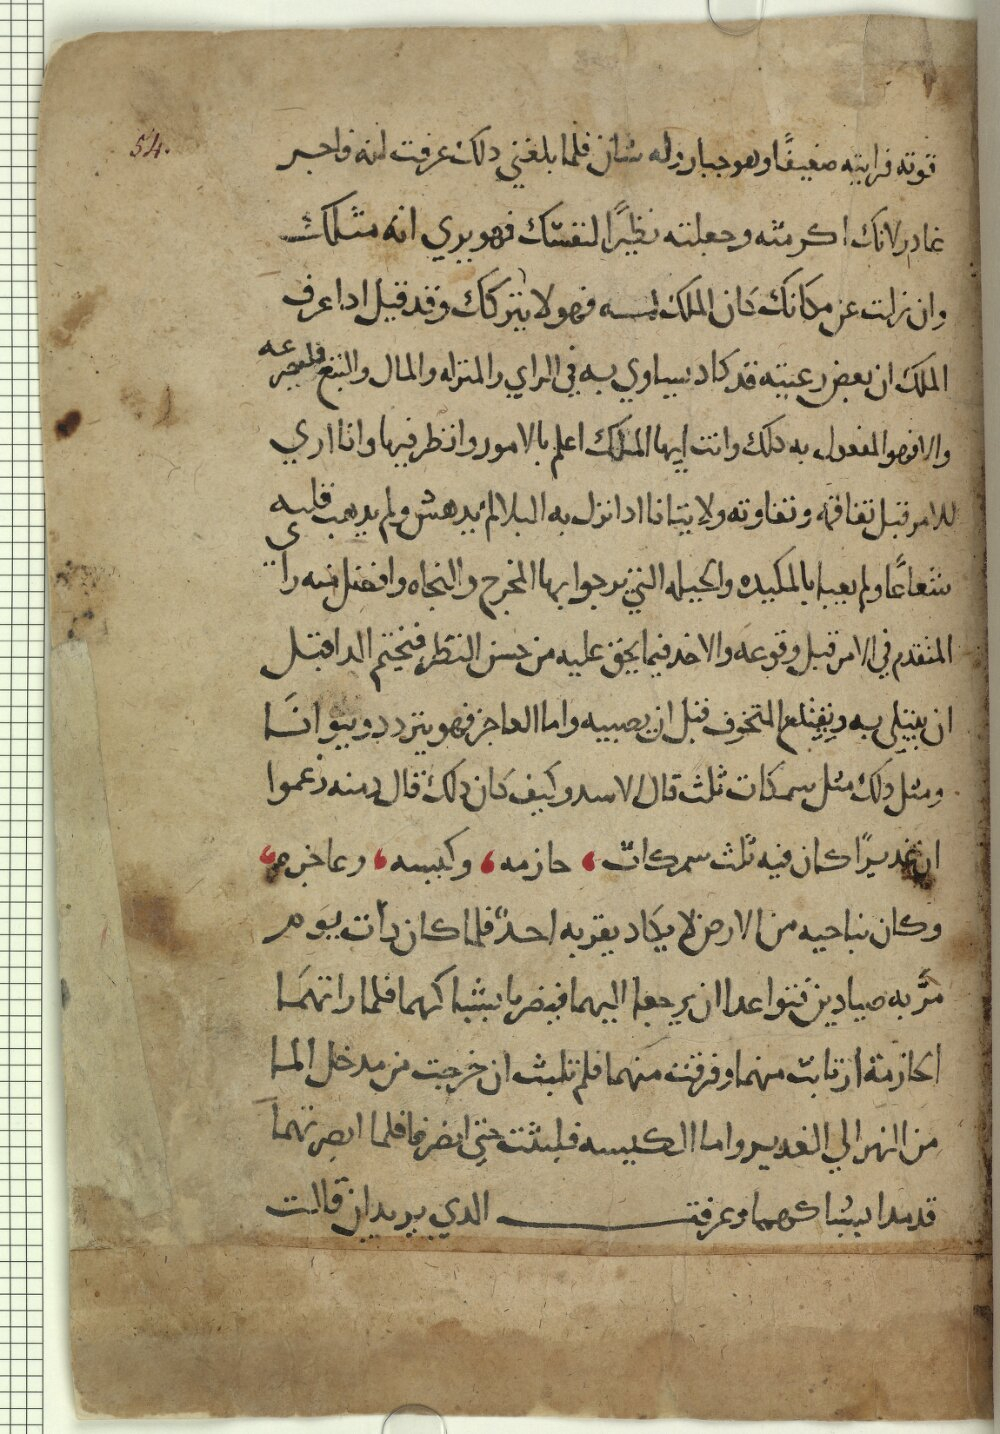 54.
قوته فرايته ضعيفًا وهو جبار وله شان فلما بلغني دلك عرفت انه فاجر
غادر لانك اكرمته وجعلته نظيرًا لنفسك فهو يري انه مثلك
وان زلت عن مكانك كان الملك له فهو لا يتركك وقد قيل ادا عرف
الملك ان بعض رعيته قد كاد يساوي به في الراي والمنزله والمال والتبع فليصرعه
والا فهو المفعول به دلك وانت ايها الملك اعلم بالامور وانظر فيها وانا اري
للامر قبل تفاقمه وتفاوته ولا يتانا ادا نزل به البلا لم يدهش ولم يدهب قلبه
شعاعًا ولم يعيا بالمكيده والحيله التي يرجوا بها المخرج والنجاه وافضل منه راي
المتقدم في الامر قبل وقوعه والاخد فيما يحق عليه من حسن النظر فيختم الدا قبل
ان يبتلي به ويقتلع المتخوف قبل ان يصيبه واما العاجز فهو يتردد ويتوانا
ومثل دلك مثل سمكات ثلث قال الاسد وكيف كان دلك قال دمنه زعموا
ان غديرًا كان فيه ثلث سمكات ، حازمه ، وكيسه ، وعاجزه ،
وكان بناحيه من الارض لا يكاد يقربه احدٌ فلما كان دات يوم
مرَّ به صيادين فتواعدا ان يرجعا اليهما فيضربا بشباكهما فلما راتهما
الحازمة ارتابت منهما وفرقت منهما فلم تلبث ان خرجت من مدخل الما
من النهر الي الغدير واما الكيسه فلبثت حتي انصرفا فلما ابصرتهما
قد مدا بشباكهما وعرفت الدي يريدان قالت